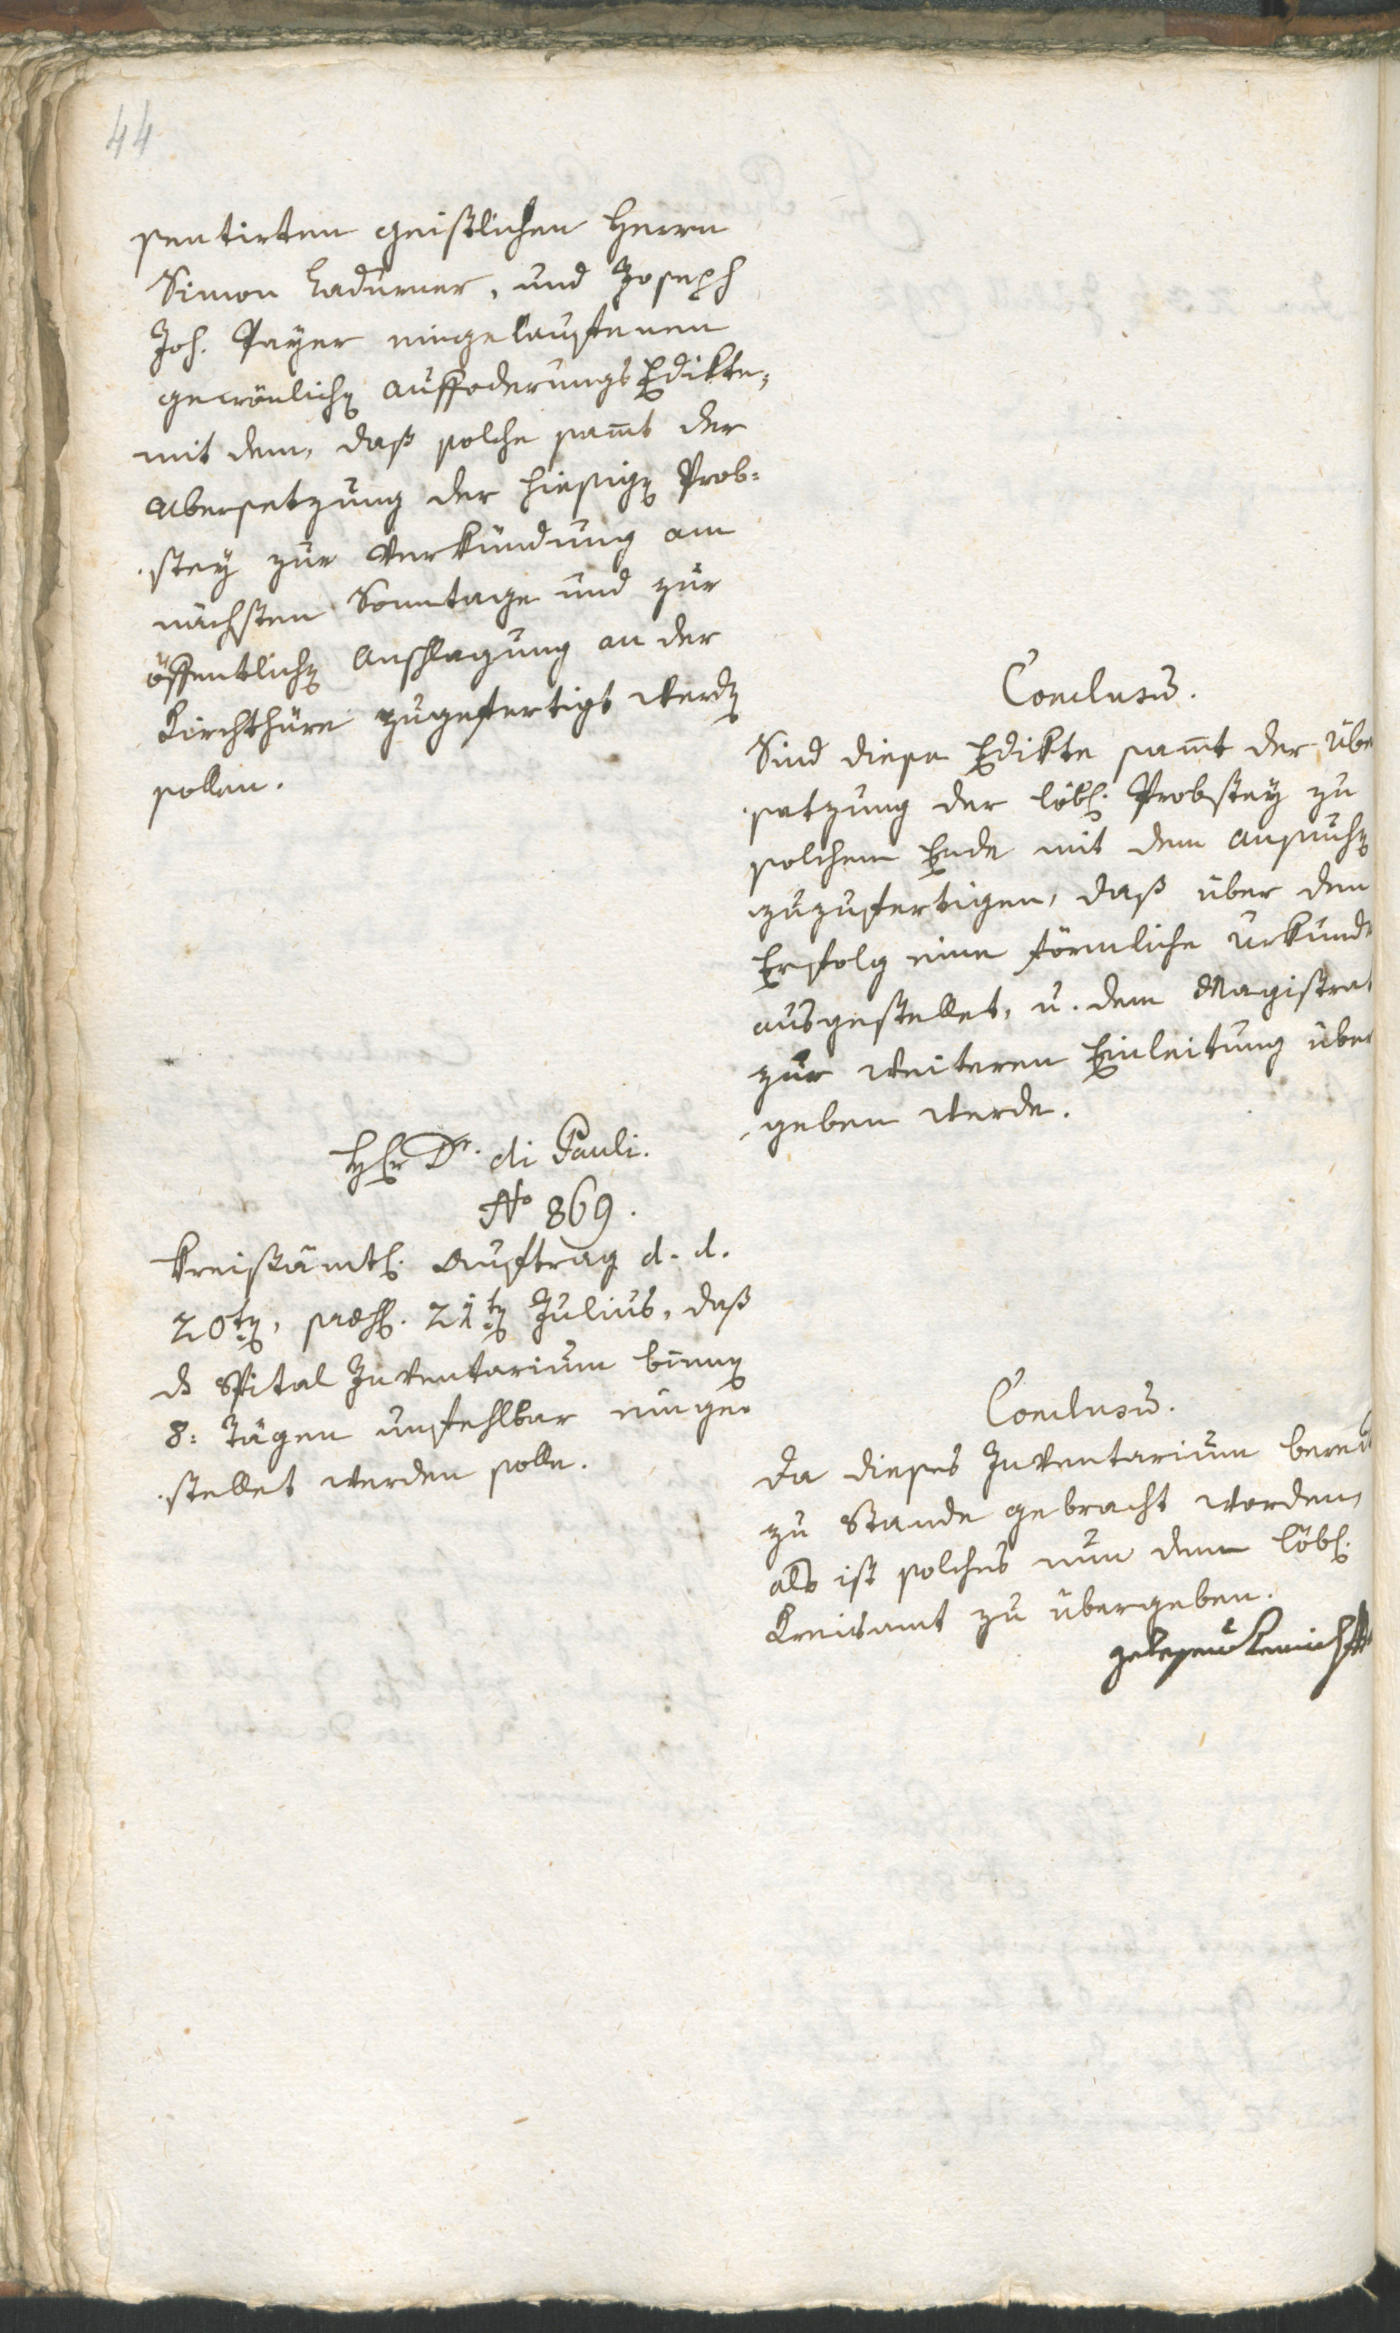 44
sentirten geistlichen Herrn
Simon Ladurner, und Joseph
Joh. Payer eingelauffenen
gewönlichen Aufforderungs Edikte,
mit dem, daß solche samt der
Übersetzung der hiesigen Prob-
stey zur Verkündung am
nächsten Sonntage und zur
öffentlichen Anschlagung an der
Kirchthüre zugefertigt werden
sollen.
Conclusum.
Sind diese Edikte samt der Über
setzung der löbl. Probstey zu
solchem Ende mit dem Ansuchen
zuzufertigen, daß über den
Erfolg eine förmliche Urkunde
ausgestellet, u. dem Magistrat
zur weiteren Einleitung über
geben werde.
Herr Dr. di Pauli.
No 869.
Kreisämtl. Auftrag d. d.
20ten, 21ten Julius, daß
das Spital Inventarium binnen
8: Tägen unfehlbar einge-
stellet werden solle.
Conclusum.
Da dieses Inventarium bereits
zu Stande gebracht worden,
als ist solches nun dem löbl.
Kreisamt zu übergeben.